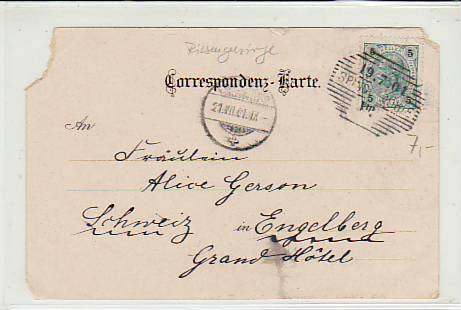 Riesengebirge
Correspondenz-Karte.
5 5
19.7.01
5 5
21.VII.01.IX
7,-
An
Fräulein
Alice Gerson
Schweiz in Engelberg
Grand Hôtel